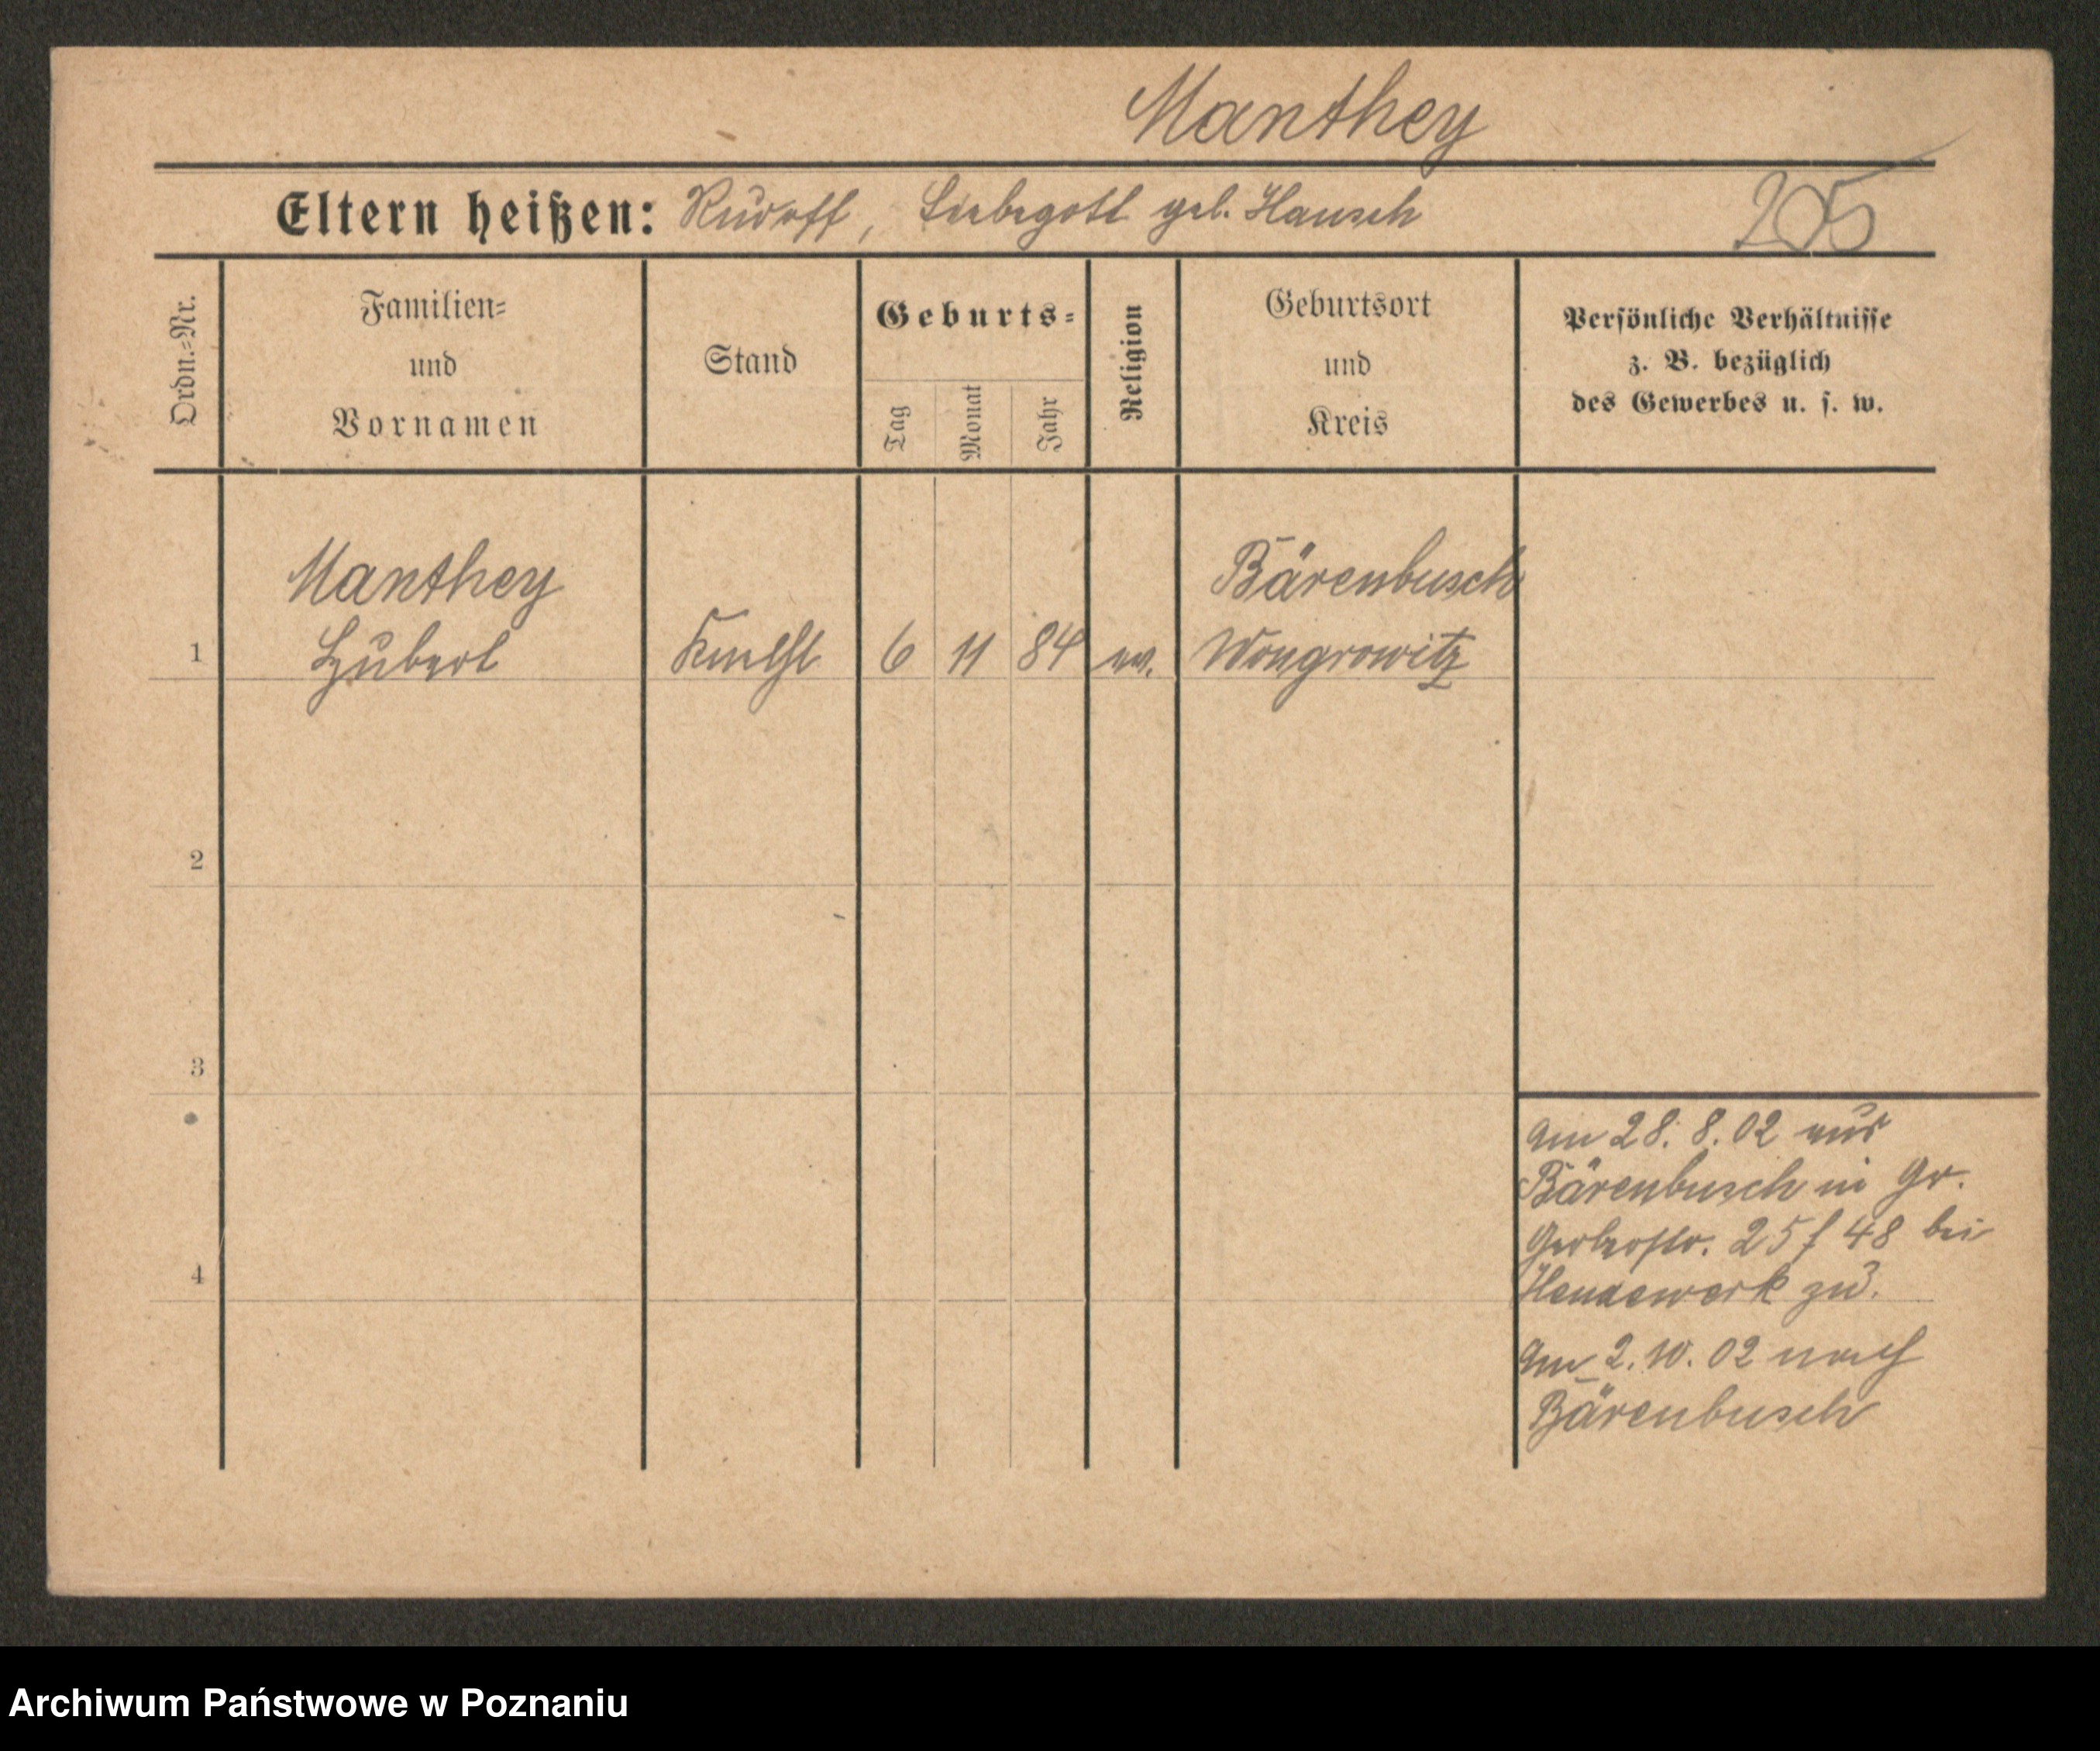 Manthey
Eltern heißen: Rudolf, Liebegott geb. Hausch
205
Ordn.-Nr.
Familien-
und
Vornamen
Stand
Geburts-
Tag
Monat
Jahr
Religion
Geburtsort
und
Kreis
Persönliche Verhältnisse
z. B. bezüglich
des Gewerbes u. s. w.
Manthey
Bärenbusch
1 Hubert 6 11 84 ev. Wongrowitz
2
3
4
Am 28. 8. 02 aus
Bärenbusch in Gr.
Gerberstr. 25 f 48 bei
Hendewerk zu.
Am 2. 10. 02 nach
Bärenbusch
Archiwum Państwowe w Poznaniu